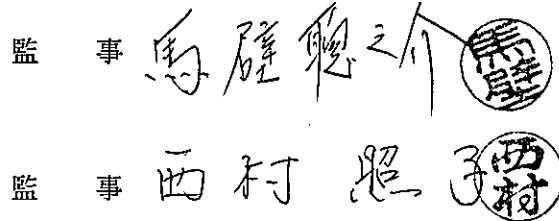 監事 馬壁聰之介 馬壁
監事 西村照子 西村